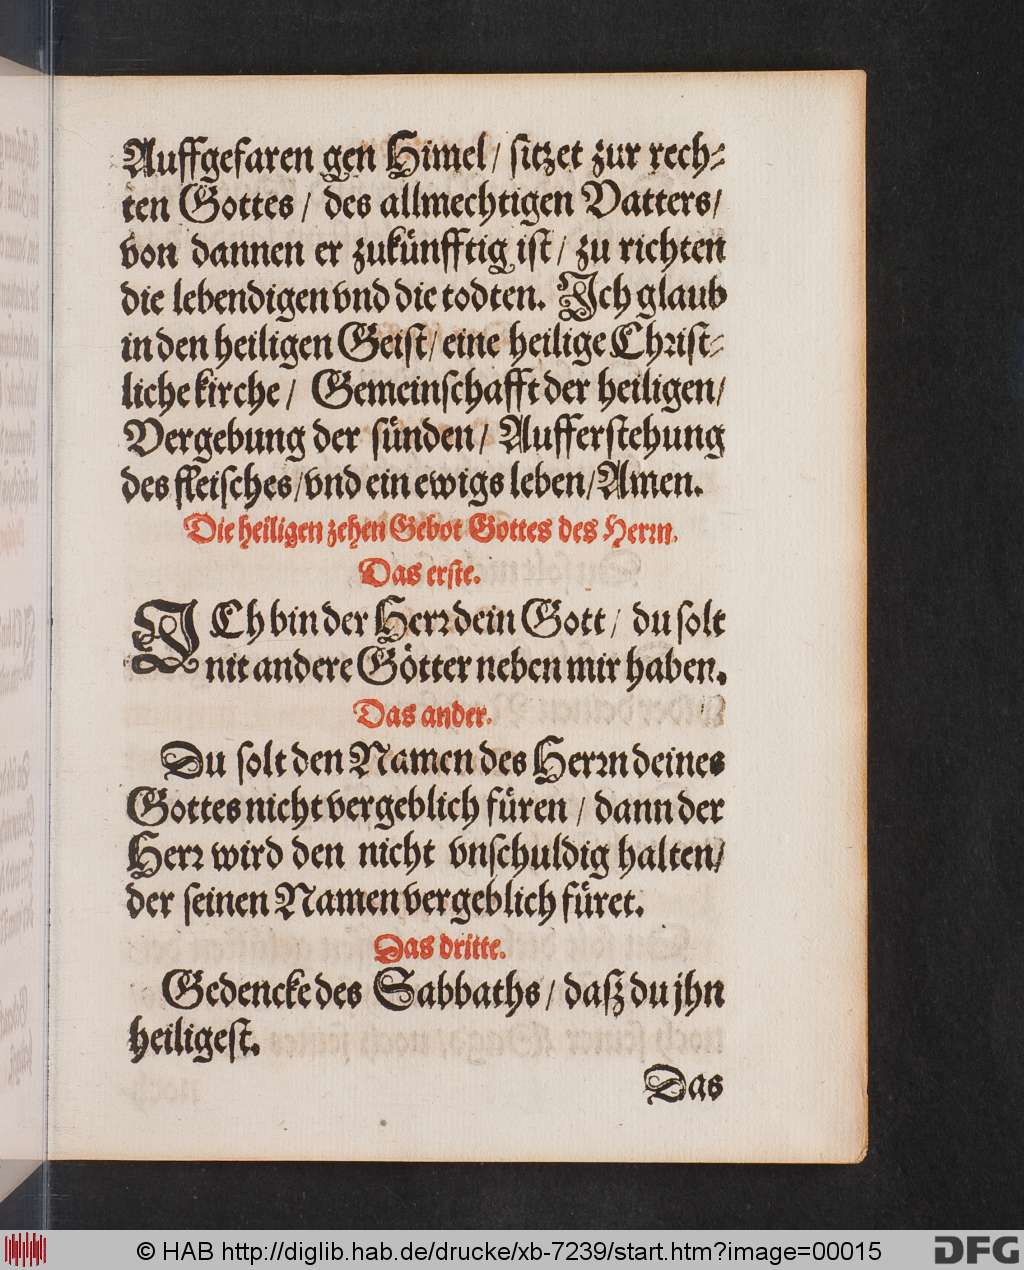 Auffgefaren gen Himel / sitzet zur rech-
ten Gottes / des allmechtigen Vatters /
von dannen er zukünfftig ist / zu richten
die lebendigen vnd die todten. Ich glaub
in den heiligen Geist / eine heilige Christ-
liche kirche / Gemeinschafft der heiligen /
Vergebung der sünden / Aufferstehung
des fleisches / vnd ein ewigs leben / Amen.
Die heiligen zehen Gebot Gottes des Herrn.
Das erste.
ICh bin der Herr dein Gott / du solt
nit andere Götter neben mir haben.
Das ander.
Du solt den Namen des Herrn deines
Gottes nicht vergeblich füren / dann der
Herr wird den nicht vnschuldig halten /
der seinen Namen vergeblich füret.
Das dritte.
Gedencke des Sabbaths / daß du jhn
heiligest.
Das
© HAB http://diglib.hab.de/drucke/xb-7239/start.htm?image=00015
DFG